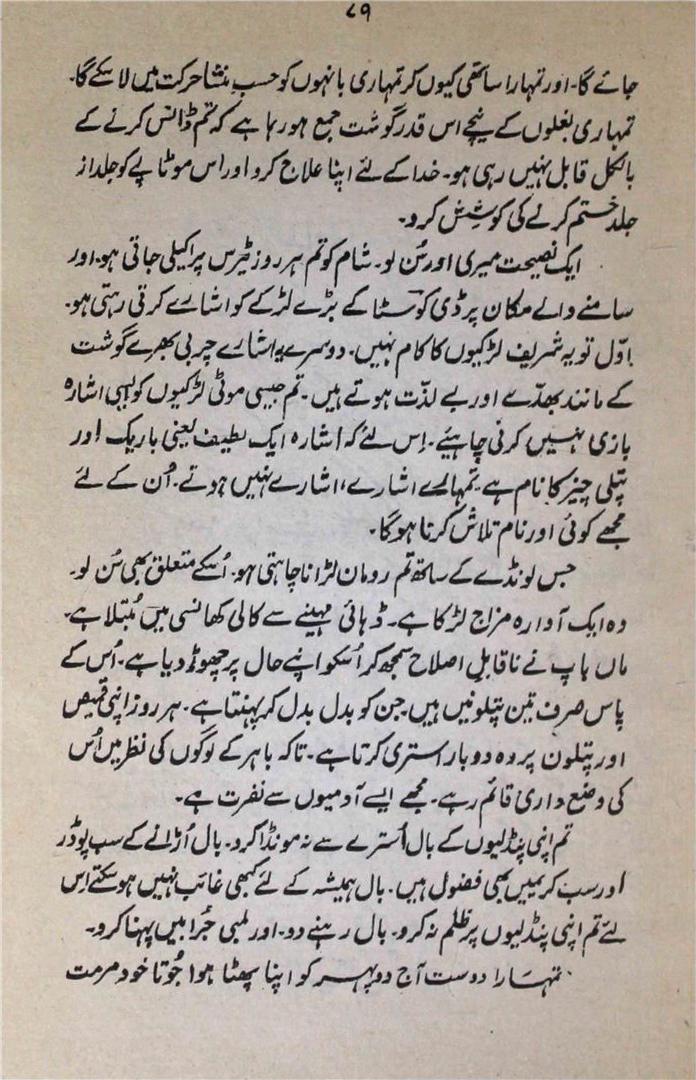 ۷۹
جائے گا۔ اور تمہارا ساتھی کیوں کر تمہاری بانہوں کو حسبِ منشا حرکت میں لا سکے گا۔
تمہاری بغلوں کے نیچے اس قدر گوشت جمع ہو رہا ہے کہ تم ڈانس کرنے کے
بالکل قابل نہیں رہی ہو۔ خدا کے لئے اپنا علاج کرو اور اس موٹاپے کو جلد از
جلد ختم کرنے کی کوشش کرو۔
ایک نصیحت میری اور سُن لو۔ شام کو تم ہر روز ٹیرس پر اکیلی جاتی ہو۔ اور
سامنے والے مکان پر ڈی کوسٹا کے بڑے لڑکے کو اشارے کرتی رہتی ہو۔
اوّل تو یہ شریف لڑکیوں کا کام نہیں۔ دوسرے یہ اشارے چربی بھرے گوشت
کے مانند بھدّے اور بے لذّت ہوتے ہیں۔ تم جیسی موٹی لڑکیوں کو ایسی اشارہ
بازی نہیں کرنی چاہیئے۔ اِس لئے کہ اشارہ ایک لطیف یعنی باریک اور
پتلی چیز کا نام ہے۔ تمہارے اشارے، اشارے نہیں ہوتے۔ اُن کے لئے
مجھے کوئی اور نام تلاش کرنا ہو گا۔
جس لونڈے کے ساتھ تم رومان لڑانا چاہتی ہو۔ اُسکے متعلق بھی سُن لو۔
وہ ایک آوارہ مزاج لڑکا ہے۔ ڈہائی مہینے سے کالی کھانسی میں مُبتلا ہے۔
ماں باپ نے ناقابلِ اصلاح سمجھ کر اُسکو اپنے حال پر چھوڑ دیا ہے۔ اُس کے
پاس صرف تین پتلونیں ہیں۔ جن کو بدل بدل کر پہنتا ہے۔ ہر روز اپنی قمیض
اور پتلون پر وہ دو بار استری کرتا ہے۔ تاکہ باہر کے لوگوں کی نظر میں اُس
کی وضع داری قائم رہے۔ مجھے ایسے آدمیوں سے نفرت ہے۔
تم اپنی پنڈلیوں کے بال اُسترے سے نہ مونڈا کرو۔ بال اُڑانے کے سب پوڈر
اور سب کریمیں بھی فضول ہیں۔ بال ہمیشہ کے لئے کبھی غائب نہیں ہو سکتے اِس
لئے تم اپنی پنڈلیوں پر ظلم نہ کرو۔ بال رہنے دو۔ اور لمبی جُرابیں پہنا کرو۔
تمہارا دوست آج دوپہر کو اپنا پھٹا ہوا جُوتا خود مرمت